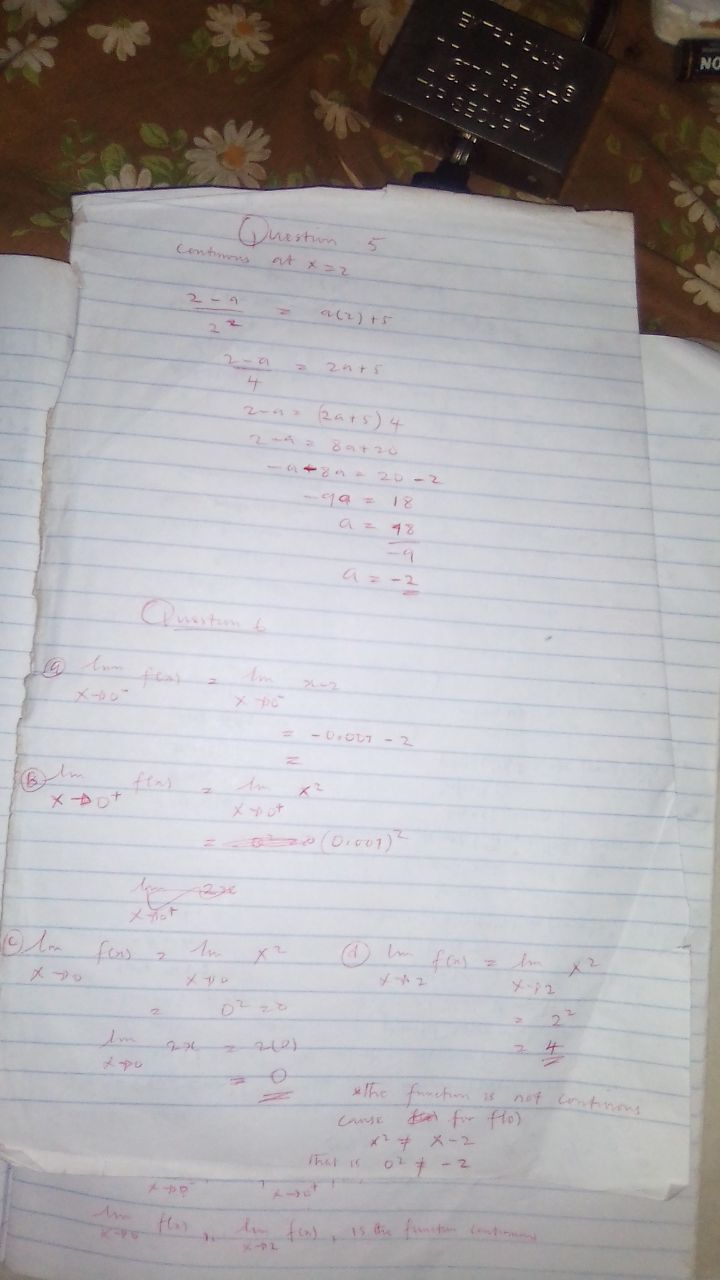 NO
Question 5
continuous at x=2
2 - a / 2² = a(2)+5
2-a / 4 = 2a+5
2-a = (2a+5)4
2-a = 8a+20
-a-8a = 20-2
-9a = 18
a = 18 / -9
a = -2
Question 6
(a) lim x→0⁻ f(x) = lim x→0⁻ x-2
= -0.001 - 2
=
(B) lim x→0⁺ f(x) = lim x→0⁺ x²
= (0.001)²
lim x→0⁺ 2x
(c) lim x→0 f(x) = lim x→0 x²
= 0² = 0
lim x→0 2x = 2(0)
= 0
(d) lim x→2 f(x) = lim x→2 x²
= 2²
= 4
*The function is not continous
cause for f(0)
x² ≠ x-2
that is 0² ≠ -2
x→0⁻ x→0⁺
lim x→0 f(x), lim x→2 f(x), is the function continous